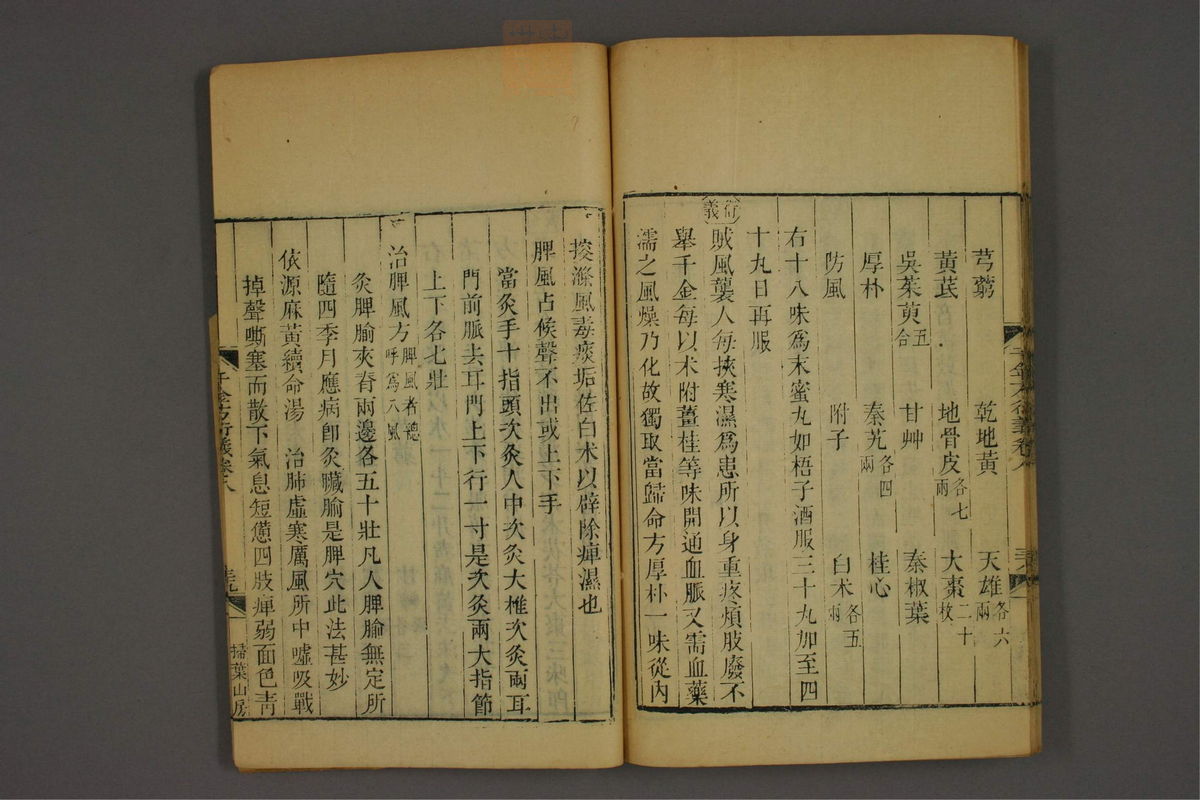 芎藭 乾地黃 天雄各六兩
黃芪 地骨皮各七兩 大棗二十枚
吳茱萸五合 甘艸 秦椒葉
厚朴 秦艽各四兩 桂心
防風 附子 白术各五兩
右十八味爲末蜜丸如梧子酒服三十丸加至四
十丸日再服
衍義
賊風襲人每挾寒濕爲患所以身重疼煩肢廢不
舉千金每以术附薑桂等味開通血脈又需血藥
濡之風燥乃化故獨取當歸命方厚朴一味從內
搜滌風毒痰垢佐白术以辟除痺濕也
脾風占候聲不出或上下手
當灸手十指頭次灸人中次灸大椎次灸兩耳
門前脈去耳門上下行一寸是次灸兩大指節
上下各七壯
治脾風方脾風者總呼爲八風
灸脾腧夾脊兩邊各五十壯凡人脾腧無定所
隨四季月應病卽灸臟腧是脾穴此法甚妙
依源麻黃續命湯 治肺虛寒厲風所中噓吸戰
掉聲嘶塞而散下氣息短憊四肢痺弱面色靑
千金方衍義卷八
掃葉山房